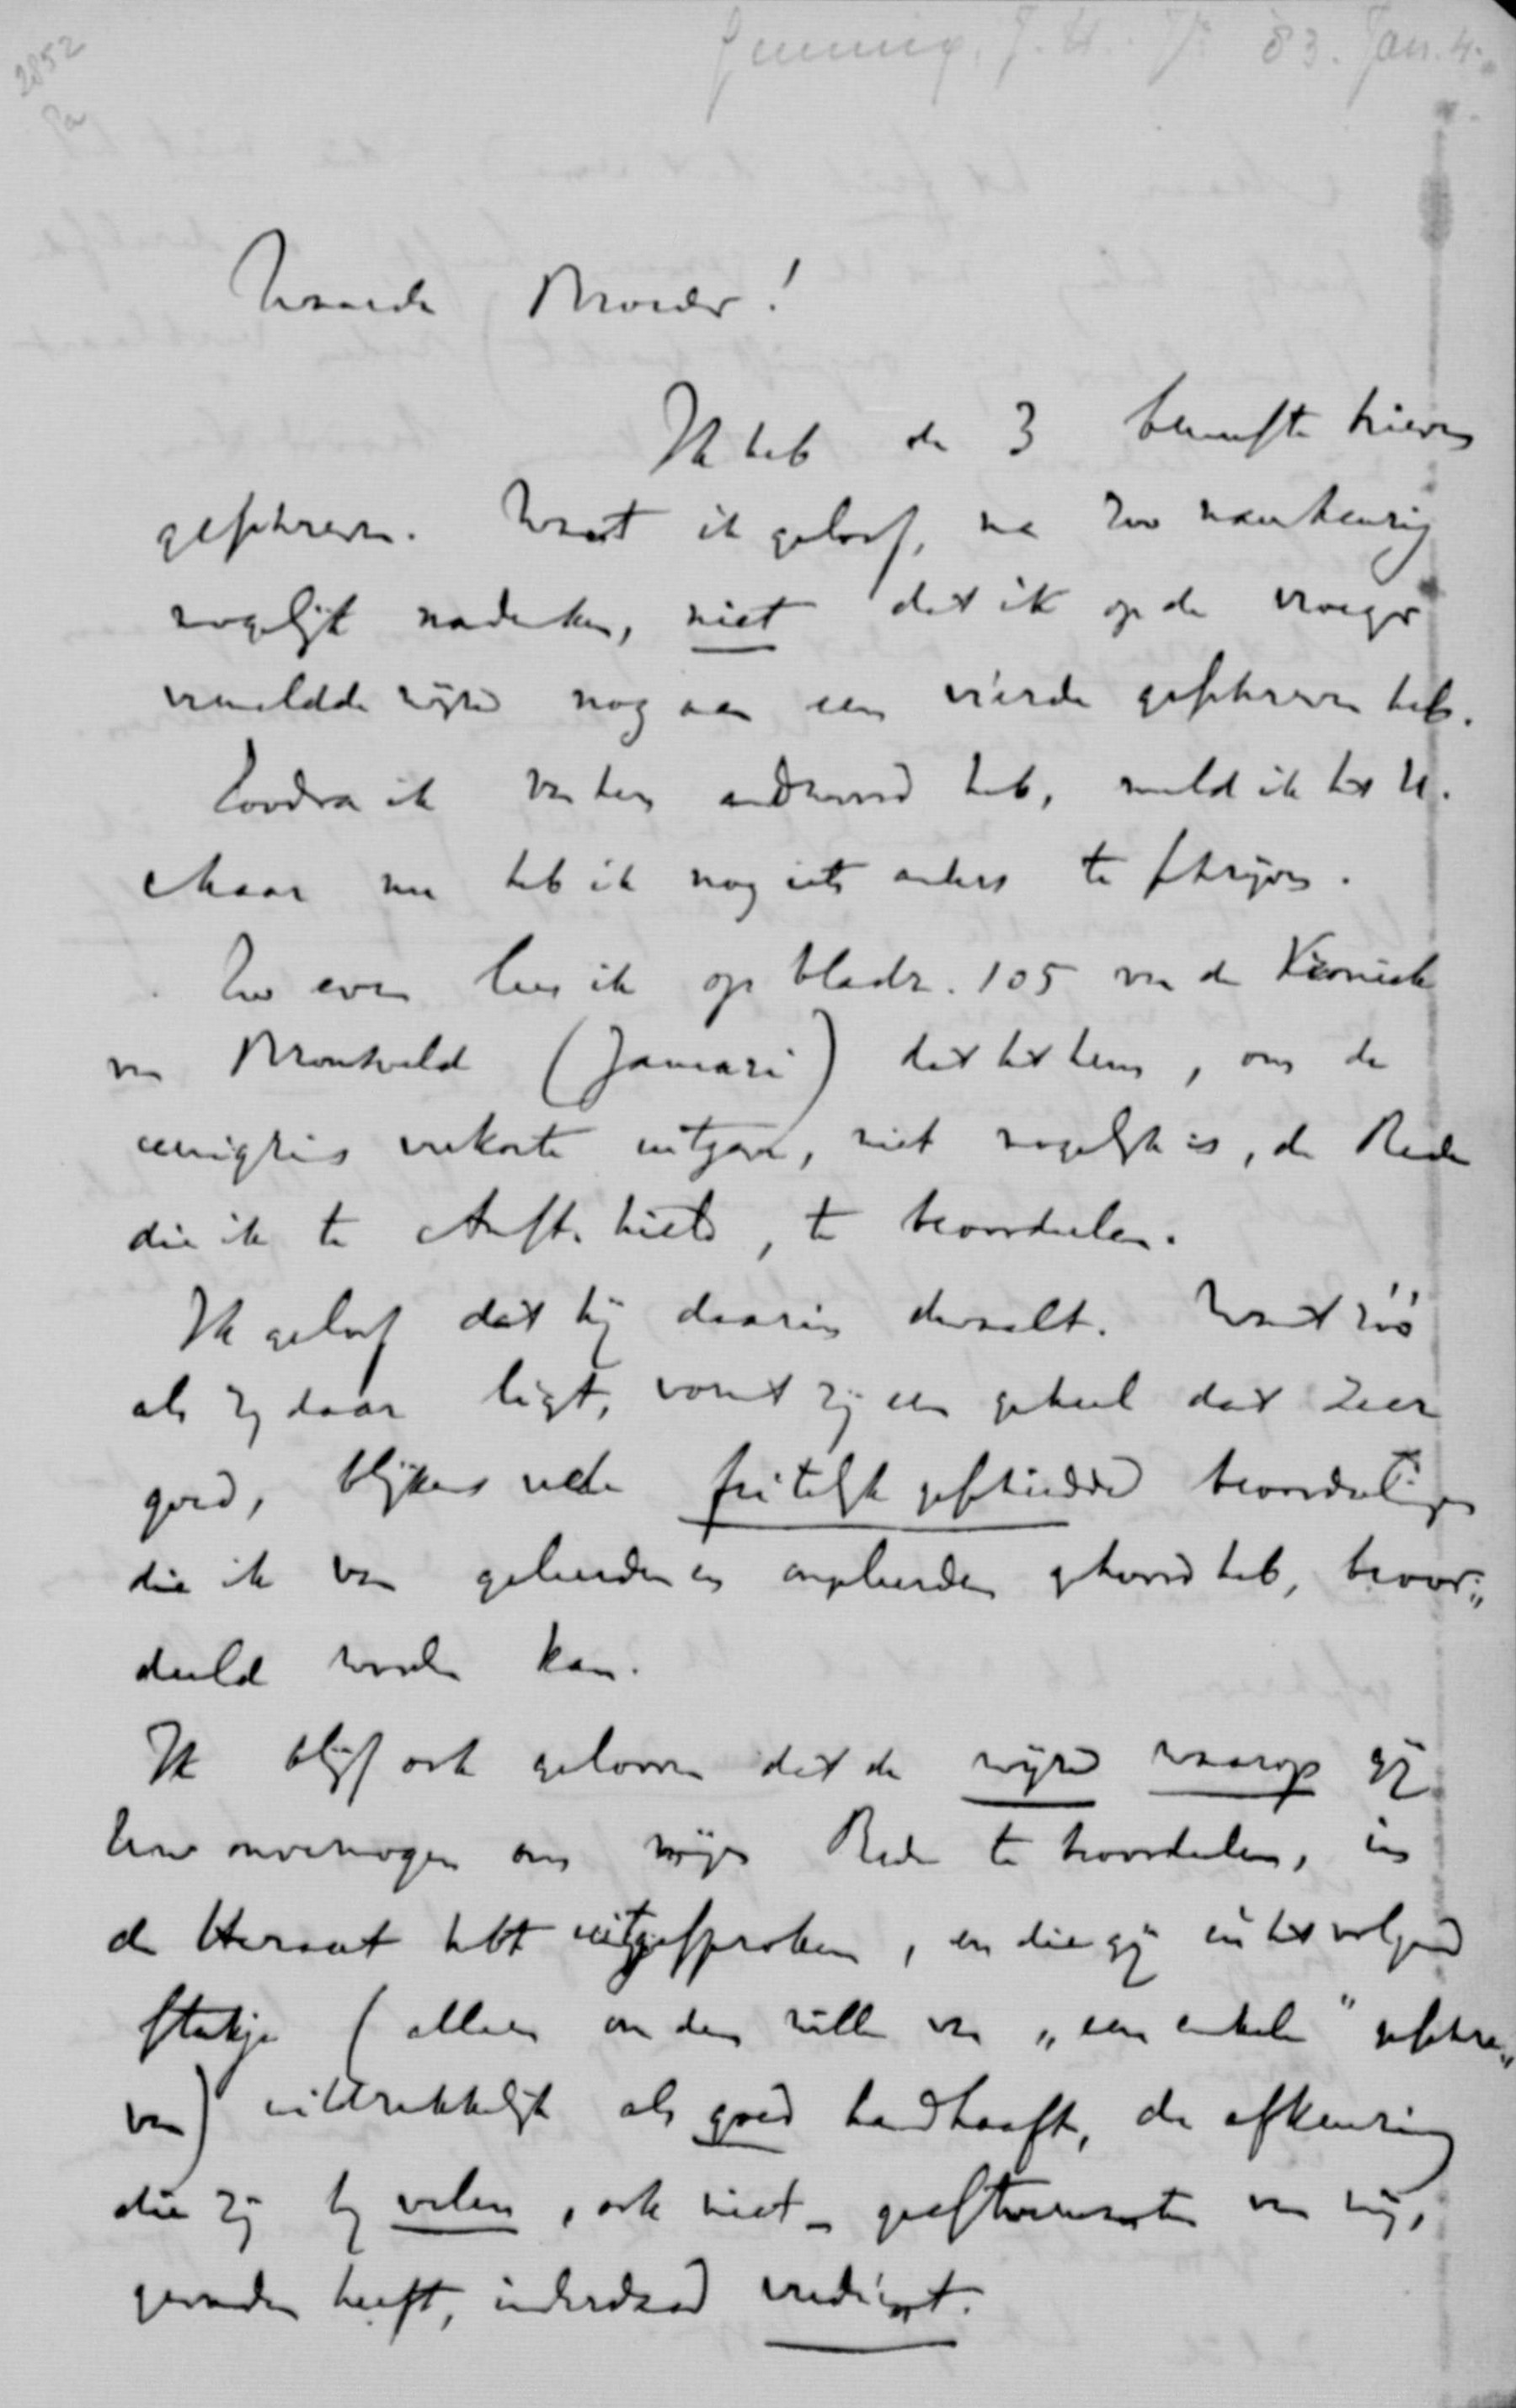 2852
Gunning, J. H. Jr 83. Jan. 4.
Waarde Broeder!
Ik heb de 3 bewuste brieven
geschreven. Want ik geloof, na zoo naauwkeurig
mogelijk nadenken, niet dat ik op de vroeger
vermeldde wijze nog aan een vierde geschreven heb.
Zoodra ik van hen antwoord heb, meld ik het U.
Maar nu heb ik nog iets anders te schrijven.
Zoo even lees ik op bladz. 105 van de Kroniek
van Bronsveld (Januari) dat het hem, om de
eenigzins verkorte uitgave, niet mogelijk is, de Rede
die ik te Amst. hield, te beoordeelen.
Ik geloof dat hij daarin dwaalt. Want zóó
als zij daar ligt, vormt zij een geheel dat zeer
goed, blijkens vele feitelijk geschiedde beoordeelingen
die ik van geleerden en ongeleerden gehoord heb, beoor„
deeld worden kan.
Ik blijf ook gelooven dat de wijze waarop gij
Uw onvermogen om mijne Rede te beoordeelen, in
de Heraut hebt uitgesproken, en die gij in het volgend
stukje (alleen om den wille van „een enkele" geschre„
ven) uitdrukkelijk als goed handhaaft, de afkeuring
die zij bij velen, ook niet-geestverwanten van mij,
gevonden heeft, inderdaad verdient.